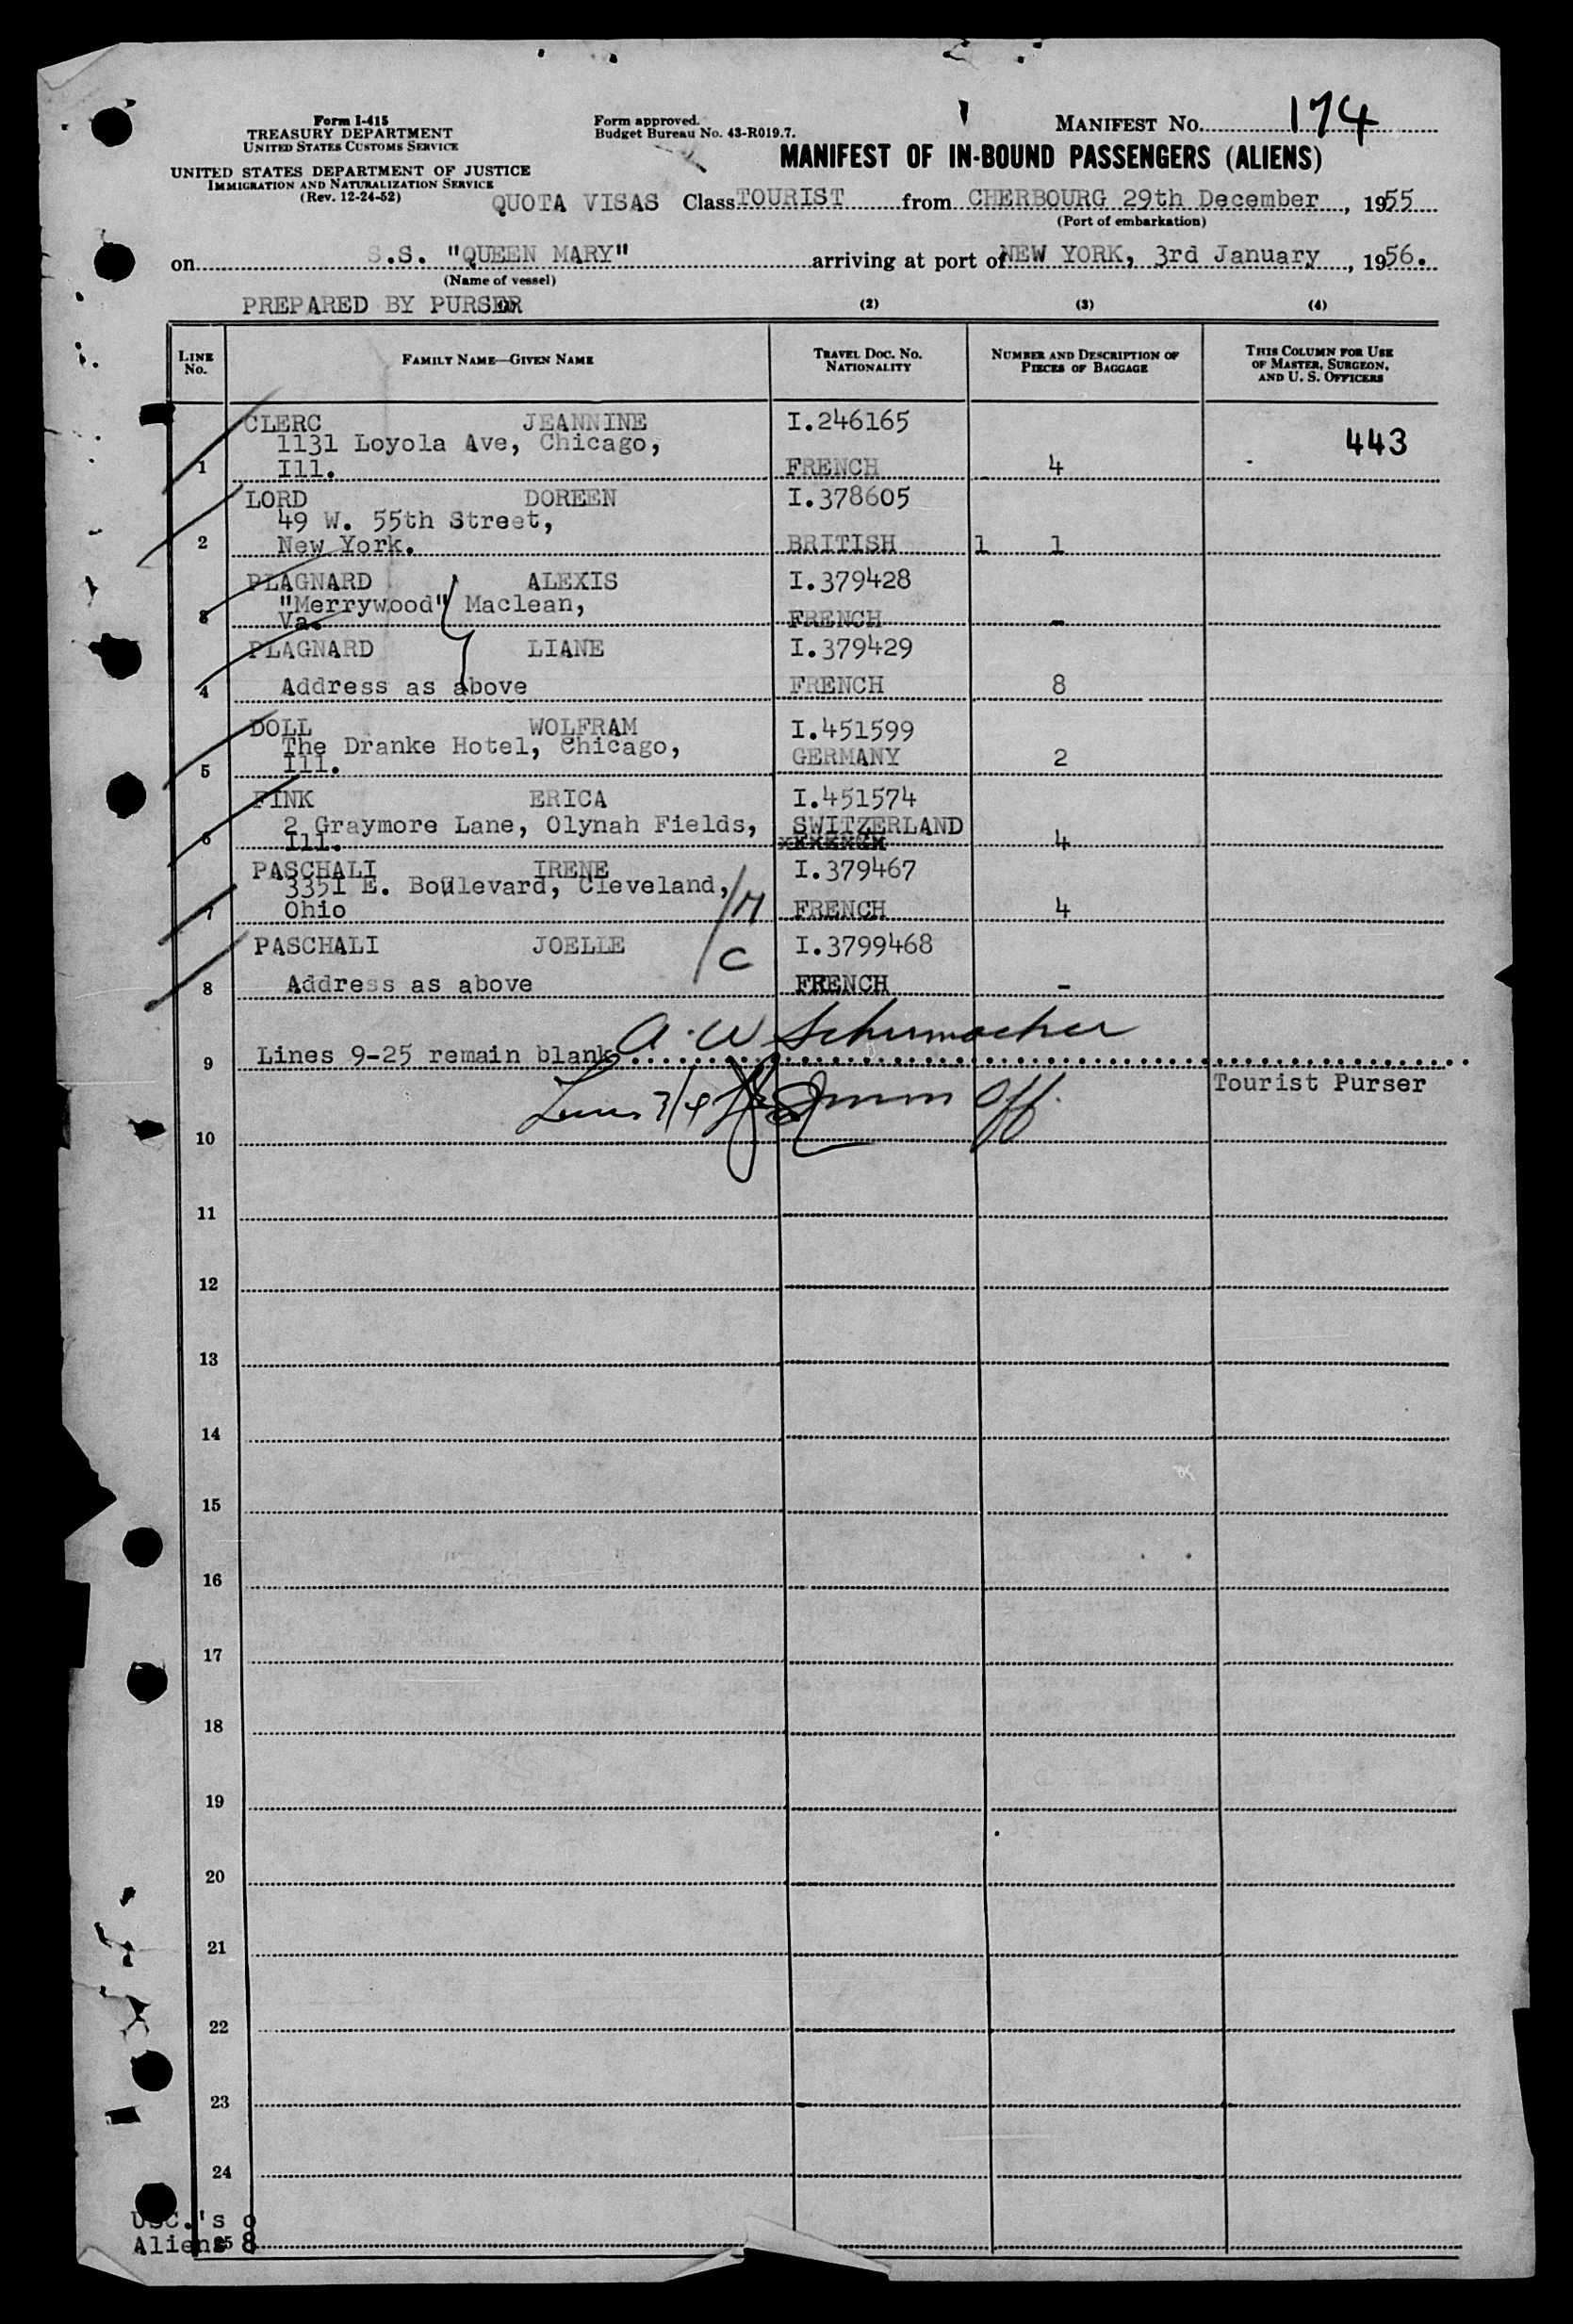 Form I-415
TREASURY DEPARTMENT
UNITED STATES CUSTOMS SERVICE
UNITED STATES DEPARTMENT OF JUSTICE
IMMIGRATION AND NATURALIZATION SERVICE
(Rev. 12-24-52)
Form approved.
Budget Bureau No. 43-R019.7.
MANIFEST NO. 174
MANIFEST OF IN-BOUND PASSENGERS (ALIENS)
QUOTA VISAS Class TOURIST from CHERBOURG 29th December, 1955
(Port of embarkation)
on S.S. "QUEEN MARY" arriving at port of NEW YORK, 3rd January, 1956.
(Name of vessel)
PREPARED BY PURSER (2) (3) (4)
LINE NO. FAMILY NAME—GIVEN NAME TRAVEL DOC. NO. NATIONALITY NUMBER AND DESCRIPTION OF PIECES OF BAGGAGE THIS COLUMN FOR USE OF MASTER, SURGEON, AND U. S. OFFICERS
CLERC JEANNINE I.246165
1131 Loyola Ave, Chicago, 443
1 Ill. FRENCH 4
LORD DOREEN I.378605
49 W. 55th Street,
2 New York. BRITISH 1 1
PLAGNARD ALEXIS I.379428
"Merrywood" Maclean,
3 Va. FRENCH -
PLAGNARD LIANE I.379429
4 Address as above FRENCH 8
DOLL WOLFRAM I.451599
The Dranke Hotel, Chicago,
5 Ill. GERMANY 2
FINK ERICA I.451574
2 Graymore Lane, Olynah Fields, SWITZERLAND
6 Ill. 4
PASCHALI IRENE I.379467
3351 E. Boulevard, Cleveland,
7 Ohio M FRENCH 4
PASCHALI JOELLE C I.3799468
8 Address as above FRENCH -
9 Lines 9-25 remain blank. A. W Schumacher
Tourist Purser
10 Off.
11
12
13
14
15
16
17
18
19
20
21
22
23
24
USC.'s 0
Aliens 25 8